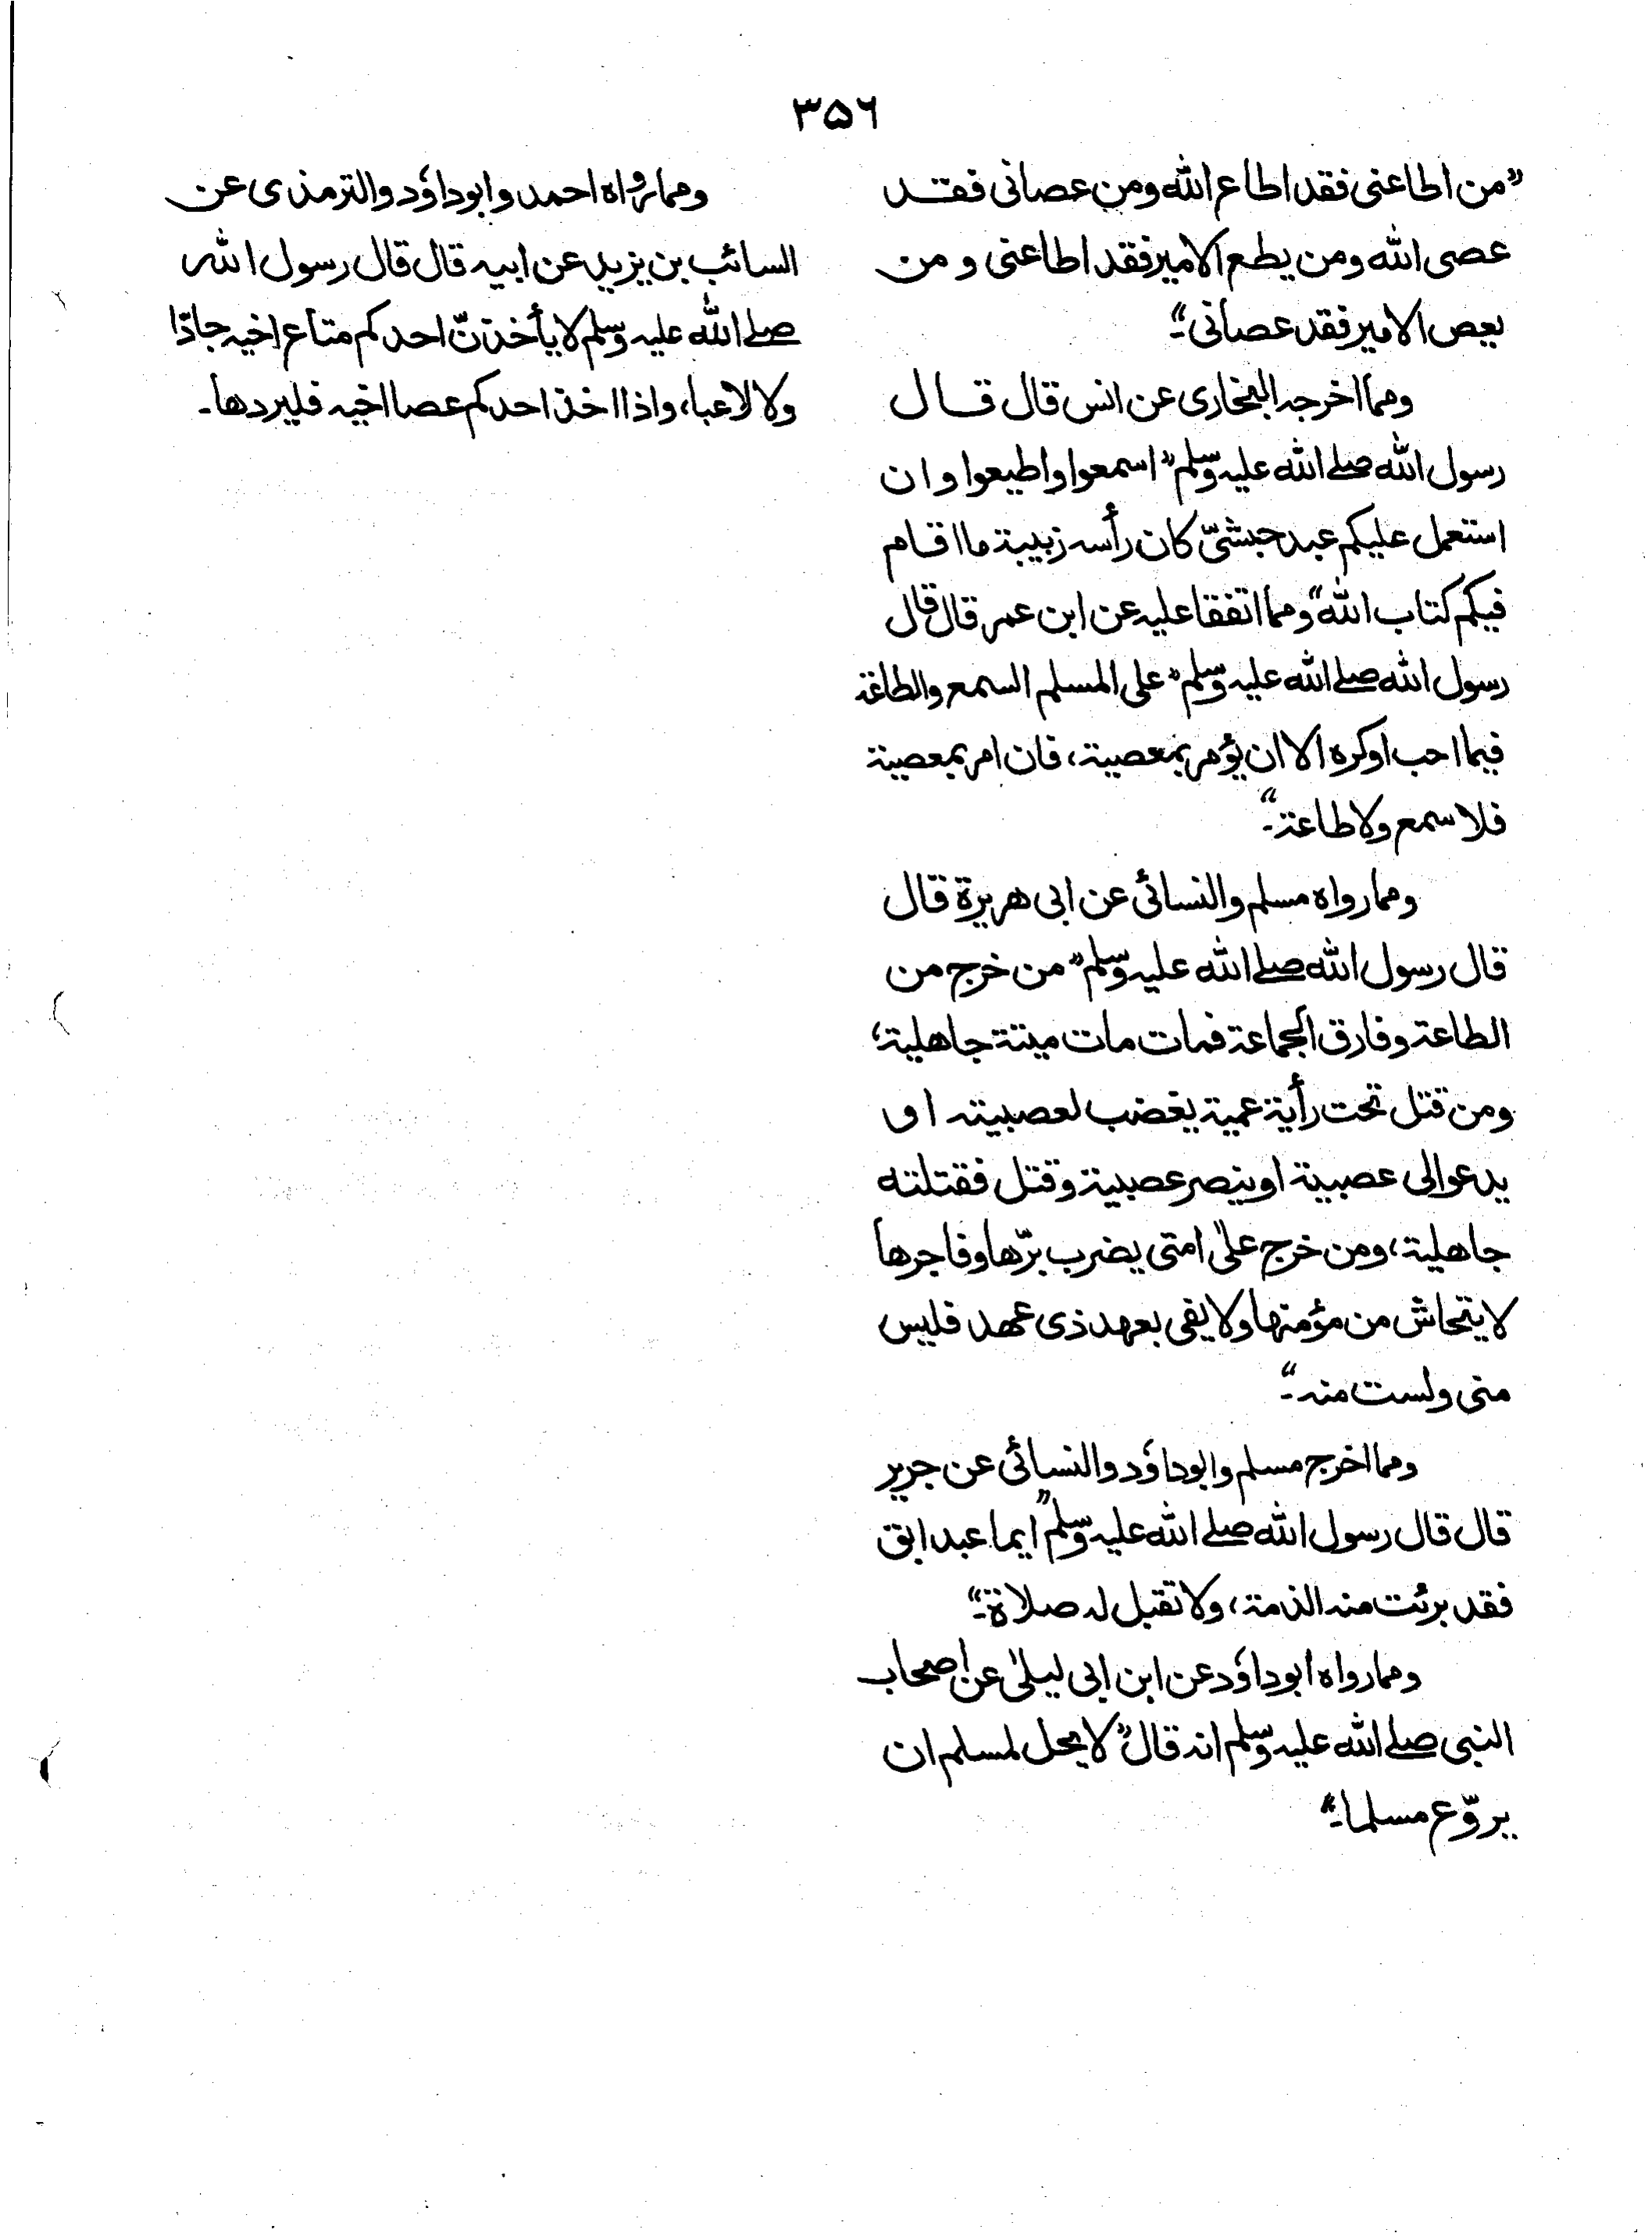 ۳۵٦
”من اطاعنى فقد اطاع الله ومن عصانى فقد
عصى الله ومن يطع الامير فقد اطاعنى و من
يعص الامير فقد عصانى“۔
ومما اخرجه البخارى عن انس قال قال
رسول الله صلے الله عليه وسلم ”اسمعوا واطيعوا وان
استعمل عليكم عبد حبشىّ كان رأسه زبيبة ما اقام
فيكم كتاب الله“ ومما اتفقا عليه عن ابن عمر قال قال
رسول الله صلے الله عليه وسلم ”على المسلم السمع والطاعة
فيما احب اوكره الا ان يؤمر بمعصية، فان امر بمعصية
فلا سمع ولا طاعة“۔
ومما رواه مسلم والنسائى عن ابى هريرة قال
قال رسول الله صلے الله عليه وسلم ”من خرج من
الطاعة وفارق الجماعة فمات مات ميتة جاهلية؛
ومن قتل تحت رأية عمية يغضب لعصبيته او
يدعوالى عصبية اوينصر عصبية وقتل فقتلته
جاهلية، ومن خرج علىٰ امتى يضرب برّها وفاجرها
لا يتحاش من مؤمنها ولا يفى بعهد ذى عهد فليس
منى ولست منه“۔
ومما اخرج مسلم وابوداؤد والنسائى عن جرير
قال قال رسول الله صلے الله عليه وسلم ”ايما عبد ابق
فقد برئت منه الذمة، ولا تقبل له صلاة“۔
ومما رواه ابوداؤد عن ابن ابى ليلىٰ عن اصحاب
النبى صلے الله عليه وسلم انه قال ”لا يحل لمسلم ان
يروّع مسلما“۔
ومما رواه احمد وابوداؤد والترمذى عن
السائب بن يزيد عن ابيه قال قال رسول الله
صلے الله عليه وسلم لا يأخذنّ احدكم متاع اخيه جادّا
ولا لاعبا، واذا اخذ احدكم عصا اخيه فليردها۔